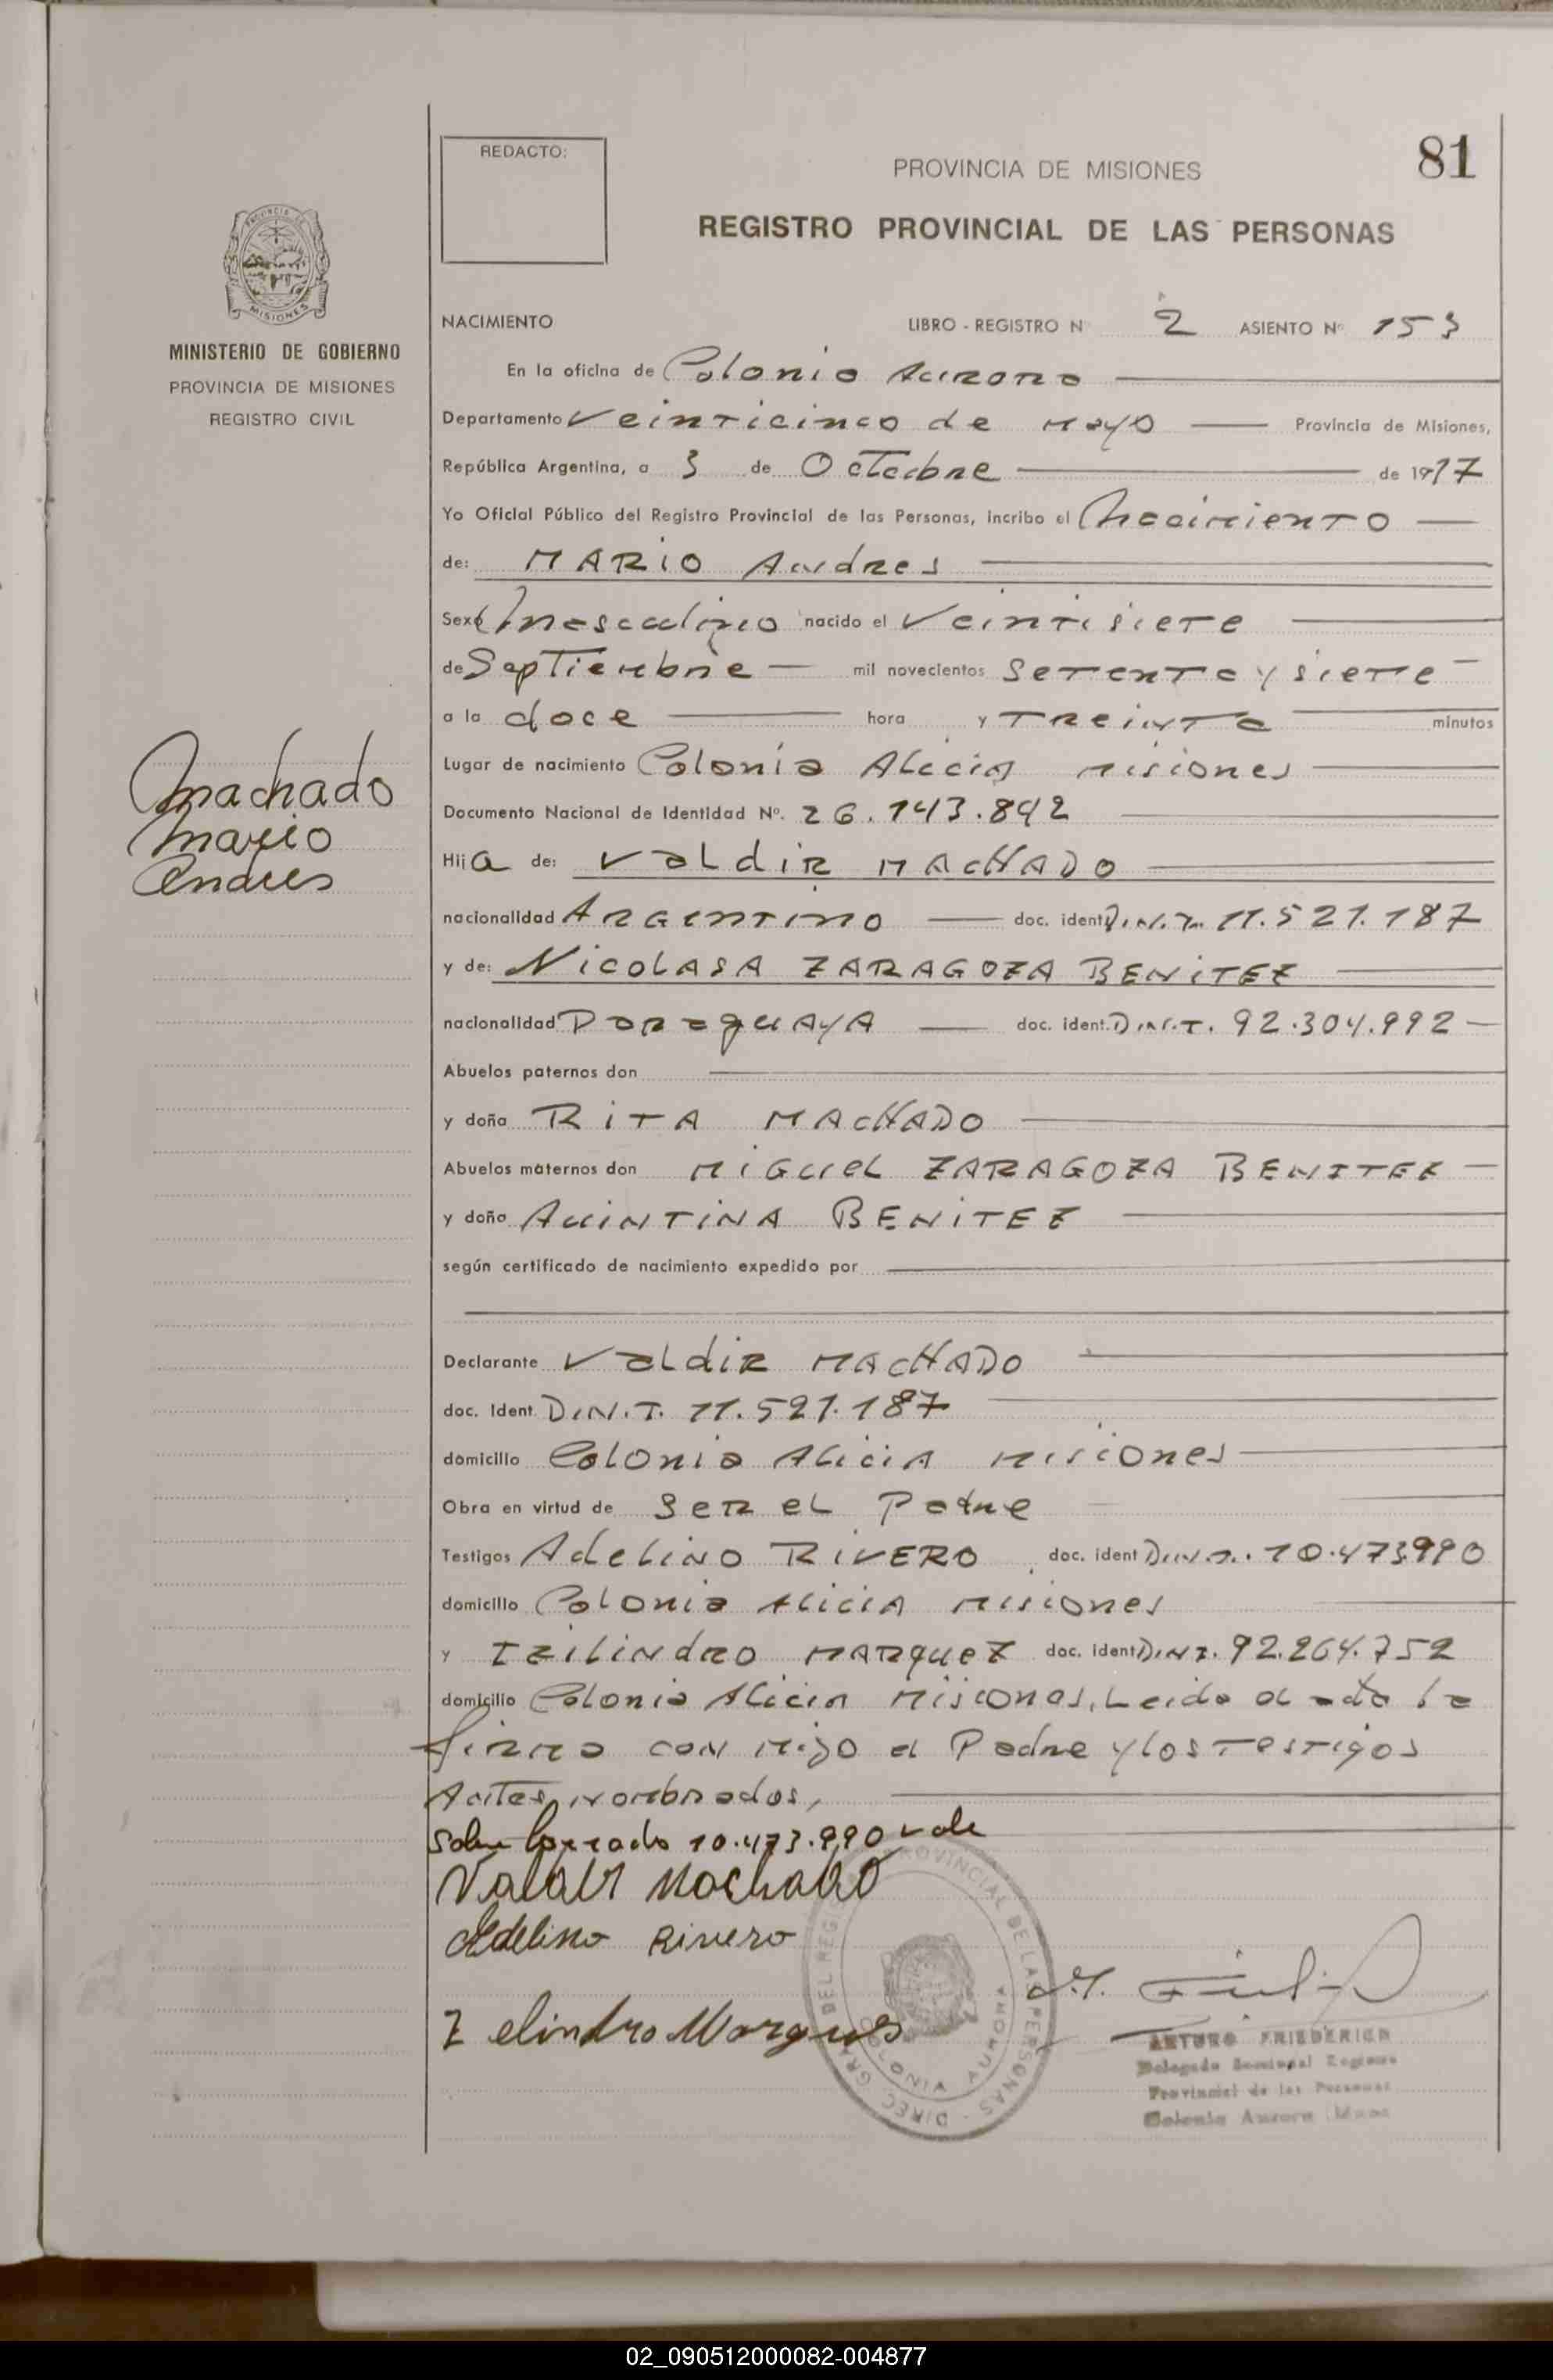 REDACTO:
PROVINCIA DE MISIONES
81
REGISTRO PROVINCIAL DE LAS PERSONAS
MISIONES
MINISTERIO DE GOBIERNO
PROVINCIA DE MISIONES
REGISTRO CIVIL
NACIMIENTO LIBRO - REGISTRO N 2 ASIENTO Nº 153
En la oficina de Colonia Aurora
Departamento Veinticinco de Mayo Provincia de Misiones,
República Argentina, a 3 de Octubre de 1977
Yo Oficial Público del Registro Provincial de las Personas, incribo el Nacimiento
de: MARIO Andres
Sexo Masculino nacido el Veintisiete
de Septiembre mil novecientos Setenta y siete
a la doce hora y Treinta minutos
Lugar de nacimiento Colonia Alicia Misiones
Machado
Mario
Andres
Documento Nacional de Identidad Nº. 26.143.892
Hij a de: Valdir MACHADO
nacionalidad ARGENTINO doc. ident. D.N.I. 11.521.187
y de: NICOLASA ZARAGOZA BENITEZ
nacionalidad ParaguAyA doc. ident. D.N.I. 92.304.992
Abuelos paternos don
y doña RITA MACHADO
Abuelos maternos don MIGUEL ZARAGOZA BENITEZ
y doña AUINTINA BENITEZ
según certificado de nacimiento expedido por
Declarante Valdir MACHADO
doc. Ident. D.N.I. 11.521.187
domicilio Colonia Alicia Misiones
Obra en virtud de Ser el Padre
Testigos Adelino RIVERO doc. ident D.N.I. 10.473.990
domicilio Colonia Alicia Misiones
y IZilindro MARQUEZ doc. ident D.N.I. 92.264.752
domicilio Colonia Alicia Misiones, Leida el acta la
firma con migo el Padre y los Testigos
Antes nombrados,
Sobre borrado 10.473.990 vale
Valdir Machado
Adelino Rivero
Zelindro Marques
DIREC. GRAL. DEL REGIS. PROVINCIAL DE LAS PERSONAS
COLONIA AURORA
ARTURO FRIEDERICH
Delegado Seccional Registro
Provincial de las Personas
Colonia Aurora
02_090512000082-004877